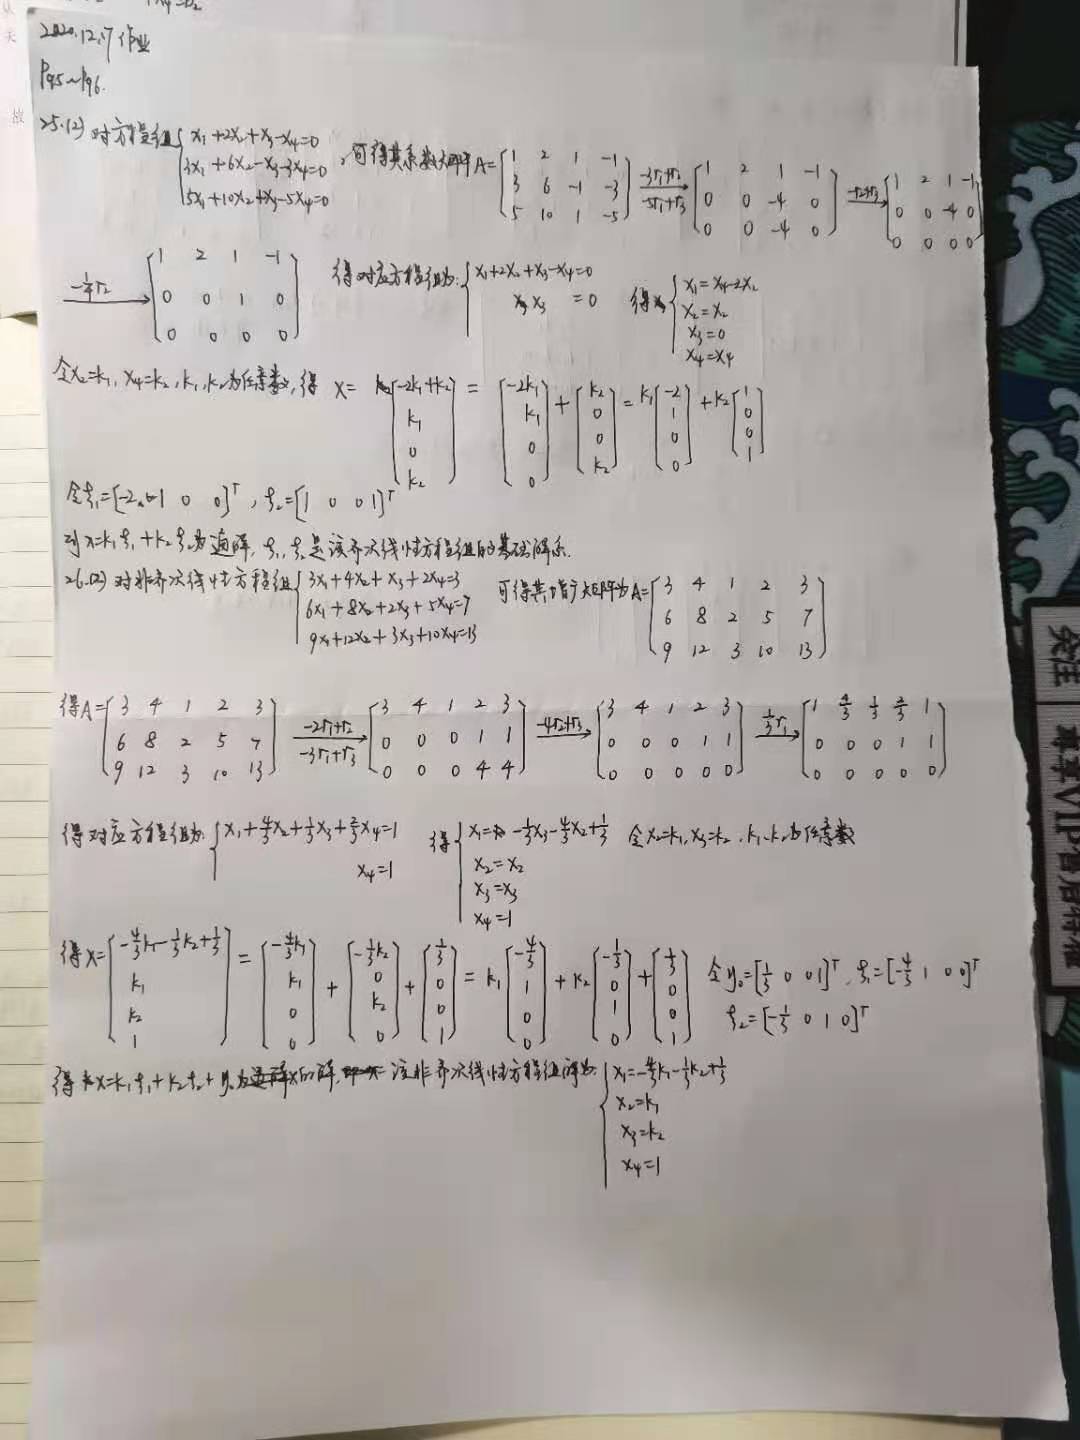 2020.12.7作业
P95~P96.
25.(2) 对方程组 { x₁+2x₂+x₃-x₄=0
3x₁+6x₂-x₃-3x₄=0
5x₁+10x₂+x₃-5x₄=0
,可得其系数矩阵A= [1 2 1 -1
3 6 -1 -3
5 10 1 -5] -3r₁+r₂ -5r₁+r₃ → [1 2 1 -1
0 0 -4 0
0 0 -4 0] -r₂+r₃ → [1 2 1 -1
0 0 -4 0
0 0 0 0]
-¼r₂ → [1 2 1 -1
0 0 1 0
0 0 0 0]
得对应方程组为: { x₁+2x₂+x₃-x₄=0
x₃ =0
得 { x₁=x₄-2x₂
x₂=x₂
x₃=0
x₄=x₄
令x₂=k₁, x₄=k₂, k₁,k₂为任意数, 得 x= [-2k₁+k₂
k₁
0
k₂] = [-2k₁
k₁
0
0] + [k₂
0
0
k₂] = k₁ [-2
1
0
0] + k₂ [1
0
0
1]
令ξ₁=[-2 1 0 0]ᵀ, ξ₂=[1 0 0 1]ᵀ
则x=k₁ξ₁+k₂ξ₂为通解, ξ₁,ξ₂是该齐次线性方程组的基础解系.
26.(2) 对非齐次线性方程组 { 3x₁+4x₂+x₃+2x₄=3
6x₁+8x₂+2x₃+5x₄=7
9x₁+12x₂+3x₃+10x₄=13
可得其增广矩阵为A= [3 4 1 2 3
6 8 2 5 7
9 12 3 10 13]
得A= [3 4 1 2 3
6 8 2 5 7
9 12 3 10 13] -2r₁+r₂ -3r₁+r₃ → [3 4 1 2 3
0 0 0 1 1
0 0 0 4 4] -4r₂+r₃ → [3 4 1 2 3
0 0 0 1 1
0 0 0 0 0] ⅓r₁ → [1 4/3 1/3 2/3 1
0 0 0 1 1
0 0 0 0 0]
得对应方程组为: { x₁+4/3x₂+1/3x₃+2/3x₄=1
x₄=1
得 { x₁= -1/3x₃-4/3x₂+1/3
x₂=x₂
x₃=x₃
x₄=1
令x₂=k₁, x₃=k₂, k₁、k₂为任意数
得x= [-4/3k₁-1/3k₂+1/3
k₁
k₂
1] = [-4/3k₁
k₁
0
0] + [-1/3k₂
0
k₂
0] + [1/3
0
0
1] = k₁ [-4/3
1
0
0] + k₂ [-1/3
0
1
0] + [1/3
0
0
1]
令η₀=[1/3 0 0 1]ᵀ, ξ₁=[-4/3 1 0 0]ᵀ
ξ₂=[-1/3 0 1 0]ᵀ
得x=k₁ξ₁+k₂ξ₂+η₀为x的解. 该非齐次线性方程组解为: { x₁=-4/3k₁-1/3k₂+1/3
x₂=k₁
x₃=k₂
x₄=1
关注